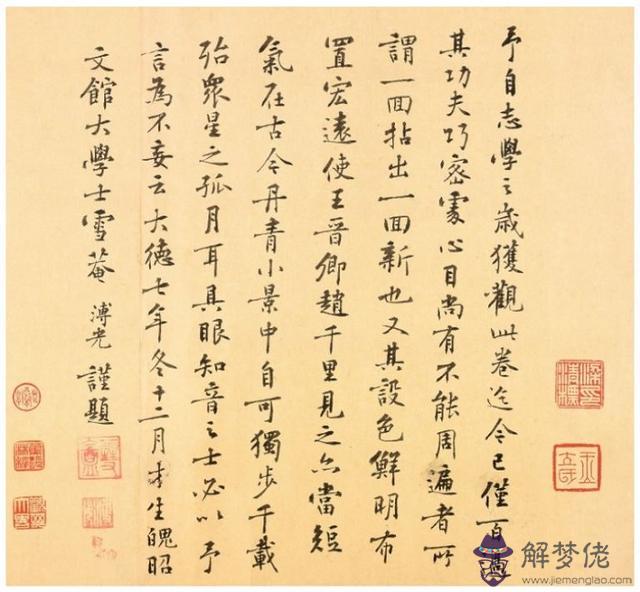 予自志學之歲獲觀此卷迄今已僅百過
其功夫巧密處心目尚有不能周遍者所
謂一回拈出一回新也又其設色鮮明布
置宏遠使王晉卿趙千里見之亦當短
氣在古今丹青小景中自可獨步千載
殆眾星之孤月耳具眼知音之士必以予
言為不妄云大德七年冬十二月才生魄昭
文館大學士雪菴 溥光 謹題
解梦佬
www.jiemenglao.com